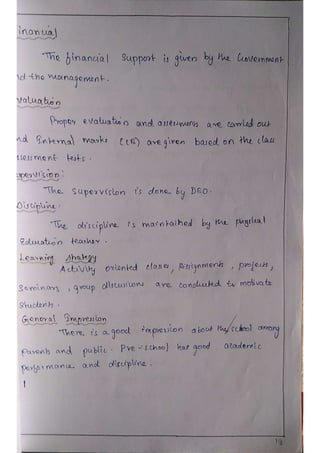 inancial
The financial support is given by the Government
nd the management.
valuation
Proper evaluation and assessments are carried out
nd Internal marks are given based on the class
assessment tests.
upervision:
The supervision is done by DEO.
Discipline:
The discipline is maintained by the physical
Education teacher.
Learning Strategy
Activity oriented classes, Assignments, projects,
Seminars, group discussions are conducted to motivate
students.
General Impression
There is a good impression about the school among
parents and public. Pre-school has good academic
performance and discipline.